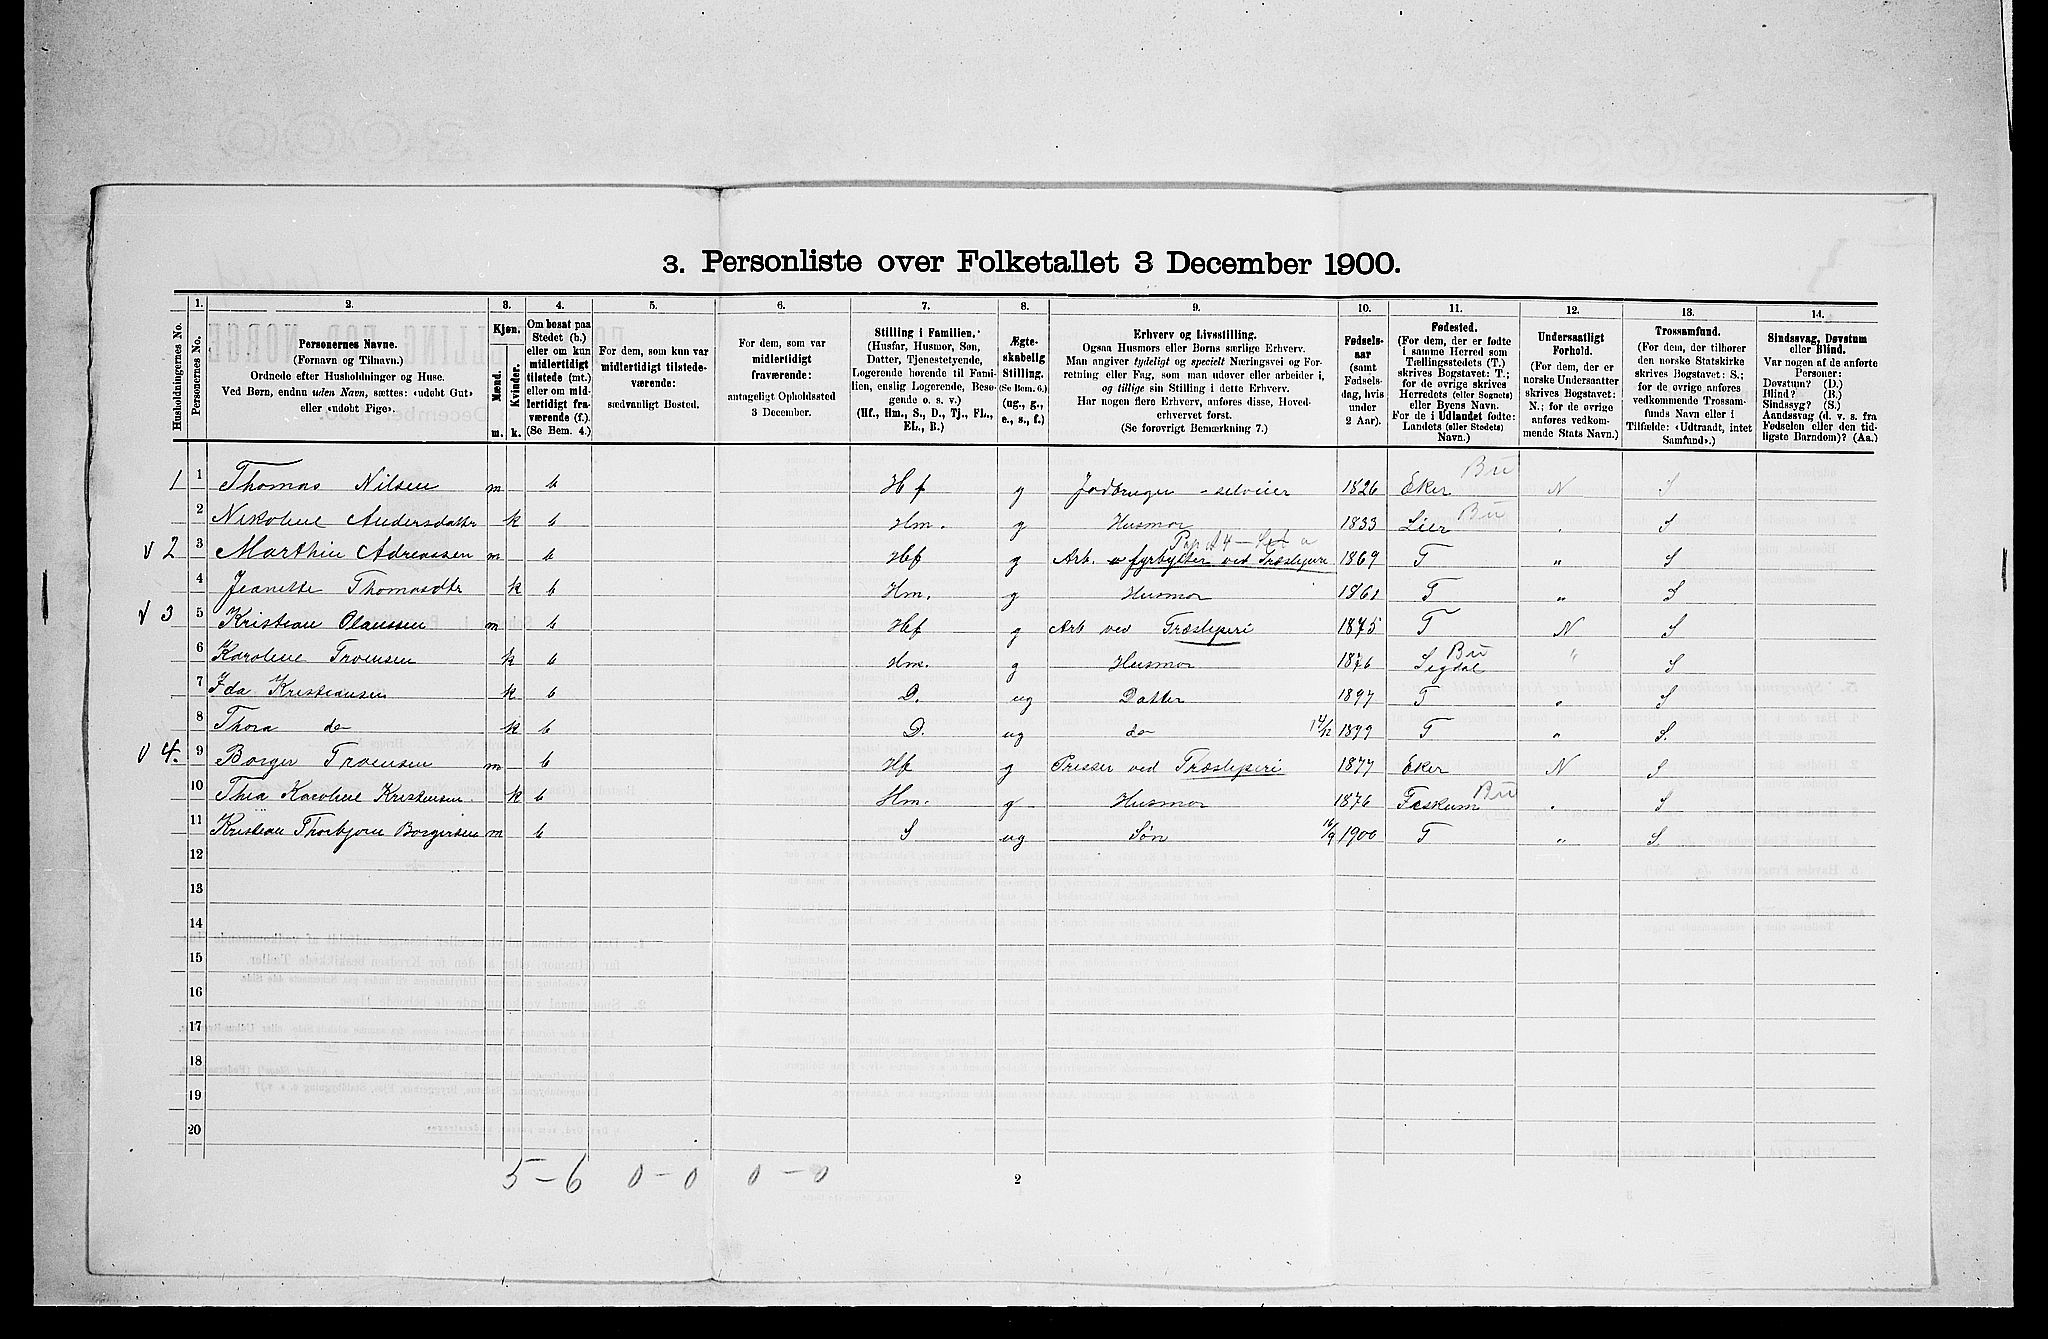 3. Personliste over Folketallet 3 December 1900.
Husholdningernes No.
1. Personernes No.
2. Personernes Navne. (Fornavn og Tilnavn.) Ordnede efter Husholdninger og Huse. Ved Børn, endnu uden Navn, sættes: «udøbt Gut» eller «udøbt Pige».
3. Kjøn. Mænd. Kvinder. m. k.
4. Om bosat paa Stedet (b.) eller om kun midlertidigt tilstede (mt.) eller om midlertidigt fraværende (f.) (Se Bem. 4.)
5. For dem, som kun var midlertidigt tilstedeværende: sædvanligt Bosted.
6. For dem, som var midlertidigt fraværende: antageligt Opholdssted 3 December.
7. Stilling i Familien. (Husfar, Husmor, Søn, Datter, Tjenestetyende, Logerende hørende til Familien, enslig Logerende, Besøgende o. s. v.) (Hf., Hm., S., D., Tj., FL., EL., B.)
8. Ægteskabelig Stilling. (Se Bem. 6.) (ug., g., e., s., f.)
9. Erhverv og Livsstilling. Ogsaa Husmors eller Børns særlige Erhverv. Man angiver tydeligt og specielt Næringsvei og Forretning eller Fag, som man udøver eller arbeider i, og tillige sin Stilling i dette Erhverv. Har nogen flere Erhverv, anføres disse, Hovederhvervet først. (Se forøvrigt Bemærkning 7.)
10. Fødselsaar (samt Fødselsdag, hvis under 2 Aar).
11. Fødested. (For dem, der er fødte i samme Herred som Tællingsstedets (T.) skrives Bogstavet: T.; for de øvrige skrives Herredets (eller Sognets) eller Byens Navn. For de i Udlandet fødte: Landets (eller Stedets) Navn.)
12. Undersaatligt Forhold. (For dem, der er norske Undersaatter skrives Bogstavet: N.; for de øvrige anføres vedkommende Stats Navn.)
13. Trossamfund. (For dem, der tilhører den norske Statskirke skrives Bogstavet: S.; for de øvrige anføres vedkommende Trossamfunds Navn eller i Tilfælde: «Udtraadt, intet Samfund».)
14. Sindssvag, Døvstum eller Blind. Var nogen af de anførte Personer: Døvstum? (D.) Blind? (B.) Sindssyg? (S.) Aandssvag (d. v. s. fra Fødselen eller den tidligste Barndom)? (Aa.)
1 1 Thomas Nilsen m b Hf g Jordbruger - selveier 1826 Eker Bu N S
2 Nikoline Andersdattr k b Hm. g Husmor 1833 Lier Bu . S
v 2 3 Marthin Adreassen m b Hf g Arb. fyrbyter ved Træsliperi 1869 T „ S
4 Jeanette Thomasdtr k b Hm. g Husmor 1861 T „ S
v 3 5 Kristian Olaussen m b Hf g Arb ved Træsliperi 1875 T N S
6 Karoline Troensen k b Hm. g Husmor 1876 Sigdal Bu " S
7 Ida Kristiansen k b D. ug Datter 1897 T „ S
8 Thora do k b D. ug do 14/12 1899 T „ S.
v 4. 9 Borger Troensen m b Hf g Presser ved Træsliperi 1877 Eker N S
10 Thea Karoline Kristensen. k b Hm. g Husmor 1876 Feskum Bu . S
11 Kristian Thorbjørn Borgersen m b S ug Søn 16/9 1900 T „ S.
12
13
14
15
16
17
18
19
20
5 - 6 0 - 0 0 - 0
2